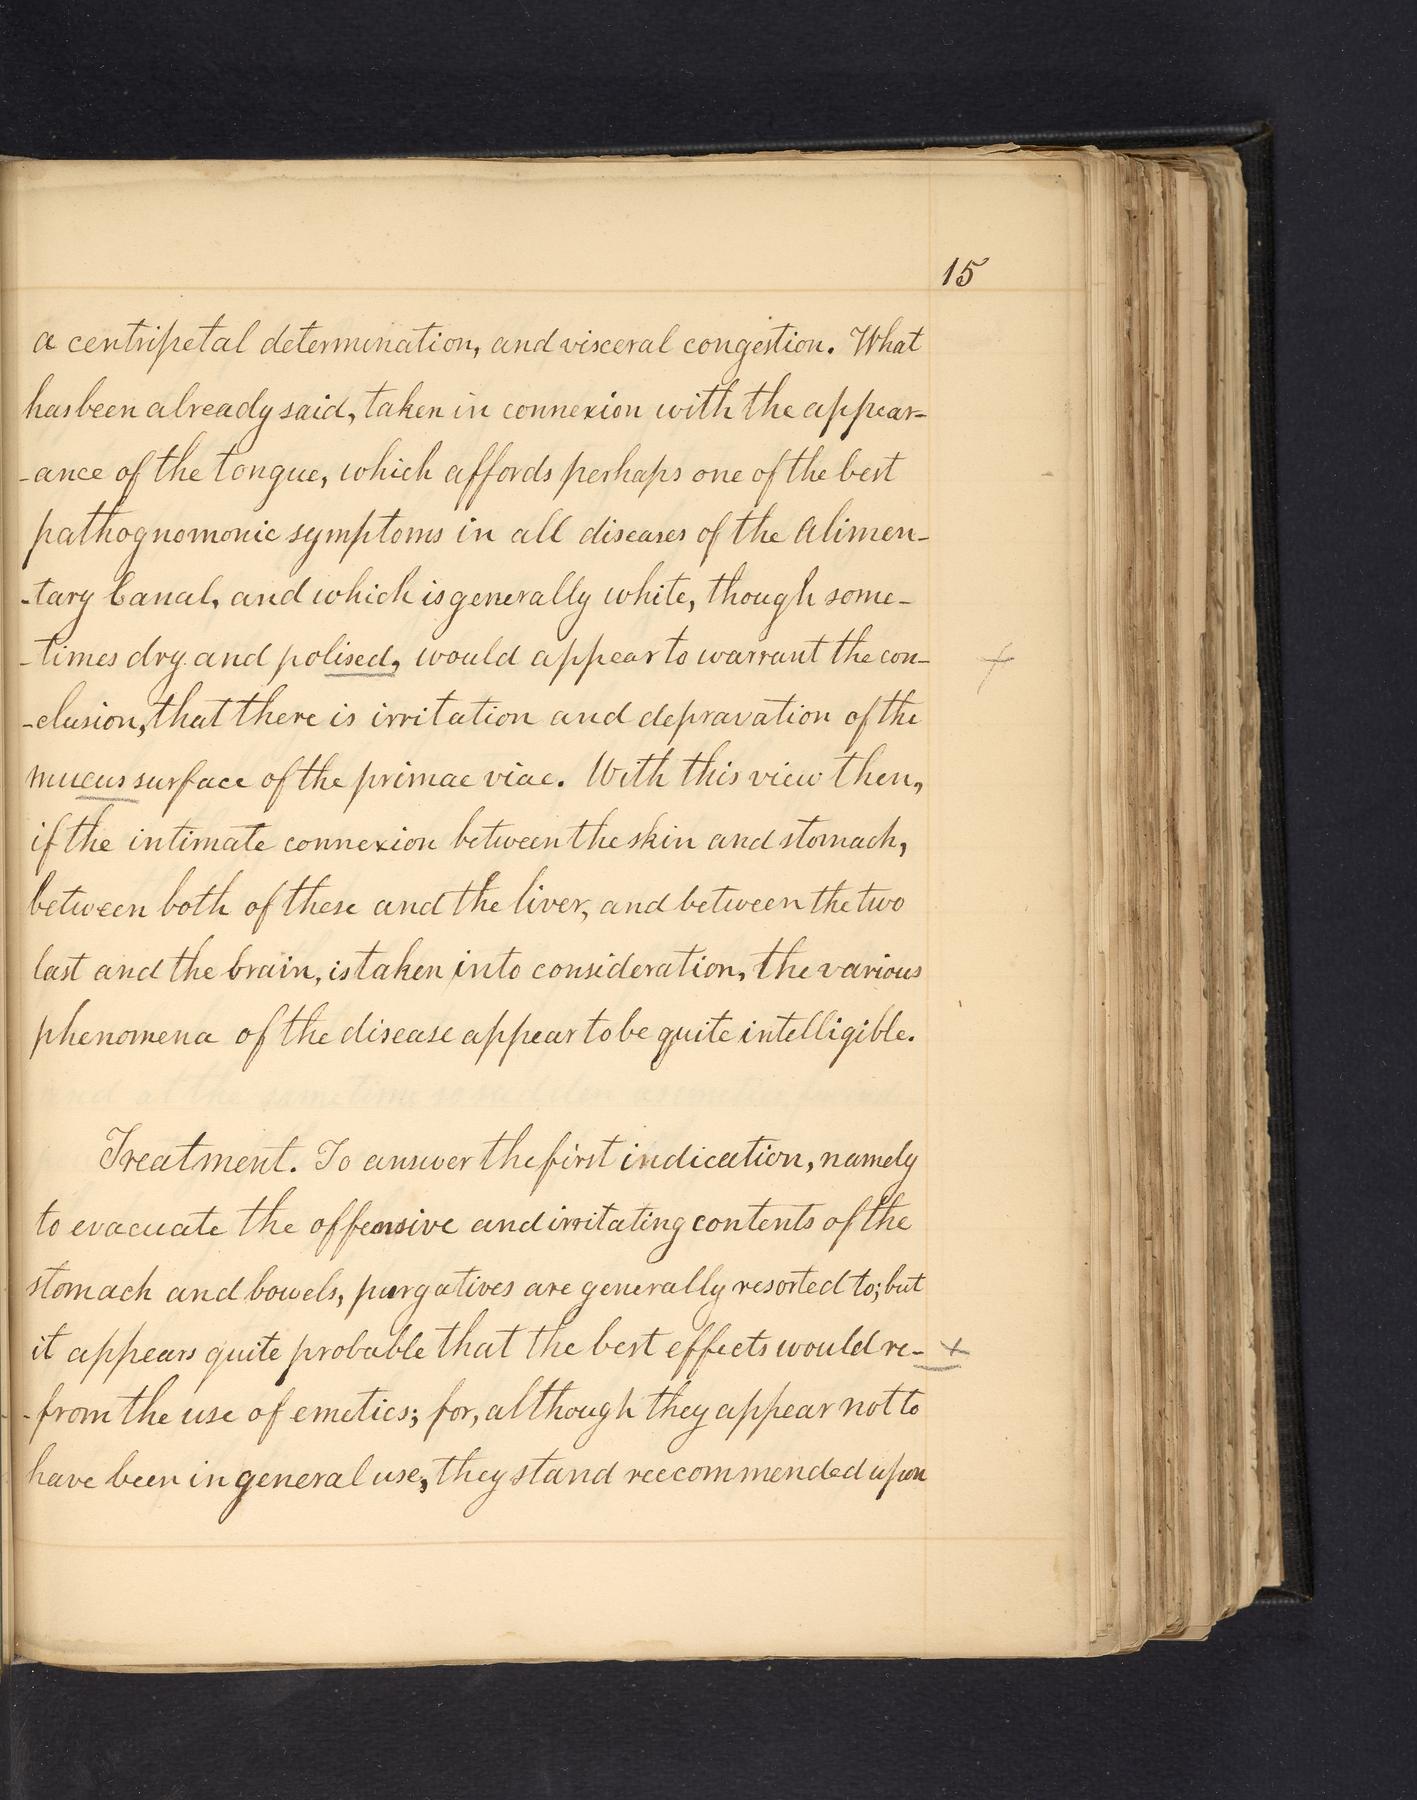 15
a centripetal determination, and visceral congestion. What
has been already said, taken in connexion with the appear-
-ance of the tongue, which affords perhaps one of the best
pathognomonic symptoms in all diseases of the alimen-
-tary Canal, and which is generally white, though some-
-times dry and polised, would appear to warrant the con-
-clusion, that there is irritation and depravation of the
mucus surface of the primae viae. With this view then,
if the intimate connexion between the skin and stomach,
between both of these and the liver, and between the two
last and the brain, is taken into consideration, the various
phenomena of the disease appear to be quite intelligible.
Treatment. To answer the first indication, namely
to evacuate the offensive and irritating contents of the
stomach and bowels, purgatives are generally resorted to; but
it appears quite probable that the best effects would re-
-from the use of emetics; for, although they appear not to
have been in general use, they stand reecommended upon